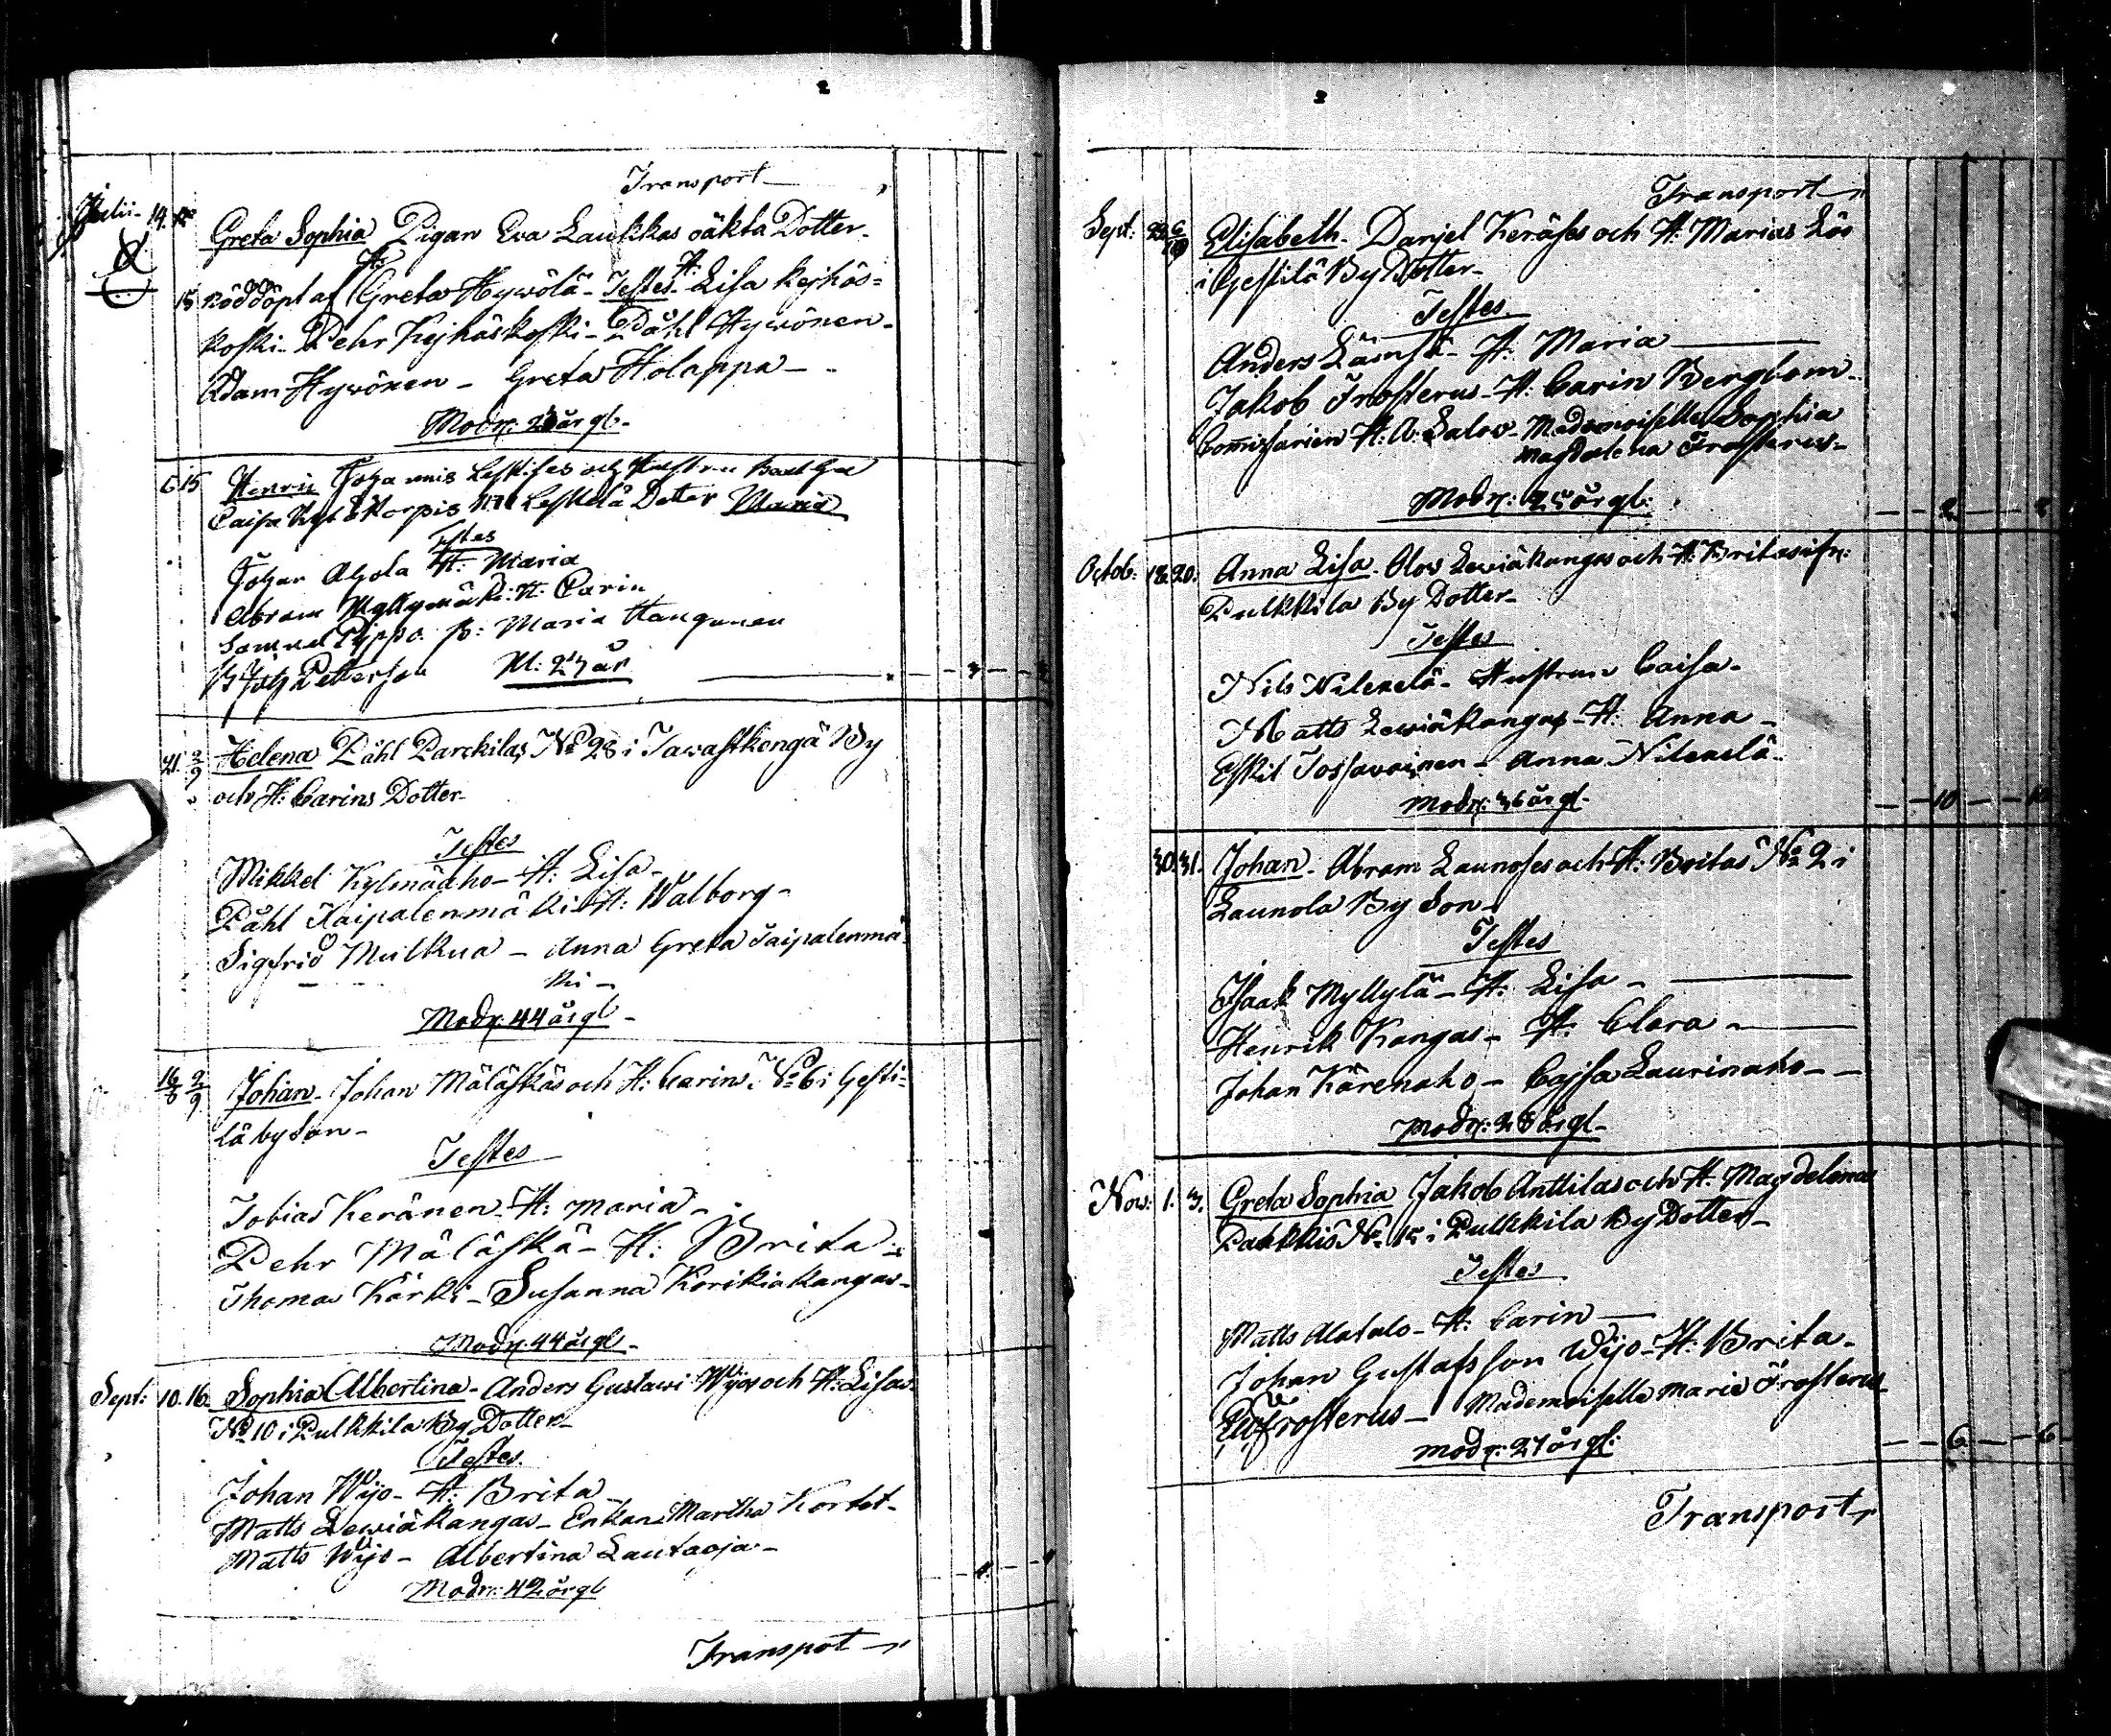 2
Transport
Julii 14.
Greta Sophia Pigan Eva Laukkas oäkta Dotter
15 nöddöpt af H: Greta Hywölä - Testes - H: Lisa Kejhäs=
koski - Pehr Kejhäskoski - Påhl Hywönen -
Adam Hywönen - Greta Holappa -
Modr: år gl -
6 15 Henric Johannis Leskises och Hustru
Caisa Dotter Maria
Testes
Johan Ahola H: Maria
Abram Myllymäki H: Carin
Samuel Pippo p: Maria Haugunen
Joh Petterson M: 27 år
21. 2/9 Helena Påhl Parckilas No 28 i Tawastkengä By
och H: Carins Dotter
Testes
Mikkel Kylmäaho - H: Lisa -
Påhl Taipalenmäki H: Walborg -
Sigfrid Mulkua - Anna Greta Taipalenmä
ki -
Modr: 44 år gl -
16/8 2/9 Johan - Johan Mäläskäs och H: Carins No 6 i Gesti=
lä by Son -
Testes
Tobias Keränen H: Maria -
Pehr Mäläskä - H: Brita -
Thomas Kärki - Susanna Korikiakangas -
Modr: 44 år gl -
Sept: 10. 16. Sophia Albertina - Anders Gustawi Wijos och H: Lisas
No 10 i Pulkkila By Dotter -
Testes
Johan Wijo - H: Brita -
Matts Lewiäkangas - Enkan Martha Kortet -
Matts Wijo - Albertina Lautaoja -
Modr: 42 år gl
Transpot
2
Transport
Sept: Elisabeth - Danjel Keräses och H: Marias Lös
i Gestilä By Dotter -
Testes
Anders Lämsä - H: Maria
Jakob Frosterus - H: Carin Bergbom -
Commissarien H: A: Salov - Mademoiselle Sophia
Magdalena Frosterus -
Modr: 25 år gl:
Octob: 18. 20. Anna Lisa - Olov Lewiäkangas och H: Britas
Pulkkila By Dotter -
Testes
Nils Nilenelä - Hustrun Caisa -
Matts Lewiäkangas - H: Anna -
Eskil Tossavainen - Anna Nilenelä -
Modr: 36 år gl -
10 10
30. 31. Johan - Abram Launoses och H: Britas No 2 i
Launola By Son -
Testes
Isaak Myllylä - H: Lisa -
Henrik Kangas - H: Clara -
Johan Kärenaho - Cajsa Laurinaho -
Modr: 28 år gl -
Nov: 1. 3. Greta Sophia Jakob Anttilas och H: Magdelena
Pakkis No 15 i Pulkkila By Dotter -
Testes
Matts Alatalo - H: Carin
Johan Gustafsson Wijo - H: Brita -
Frosterus - Mademoiselle Maria Frosterus
Modr: 27 år gl:
6 6
Transport